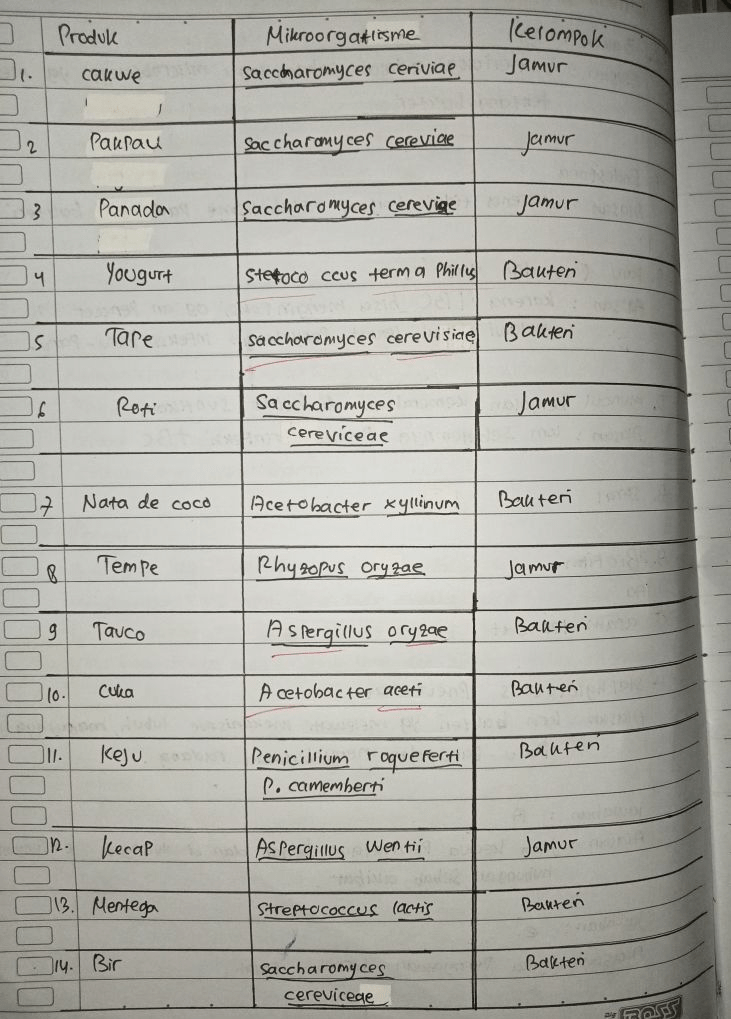 Produk Mikroorganisme Kelompok
1. cakwe saccharomyces ceriviae Jamur
2 Paupau saccharomyces cereviae Jamur
3 Panada saccharomyces cereviae Jamur
4 Yougurt Stetoco ccus term a Phillus Bakteri
5 Tape saccharomyces cerevisiae Bakteri
6 Roti Saccharomyces Jamur
cereviceae
7 Nata de coco Acetobacter xyllinum Bakteri
8 Tempe Rhyzopus oryzae Jamur
9 Tauco Aspergillus oryzae Bakteri
10. cuka Acetobacter aceti Bakteri
11. Keju Penicillium roqueferti Bakteri
P. camemberti
12. Kecap Aspergillus wentii Jamur
13. Mentega Streptococcus lactis Bakteri
14. Bir Saccharomyces Bakteri
cereviceae
BOSS